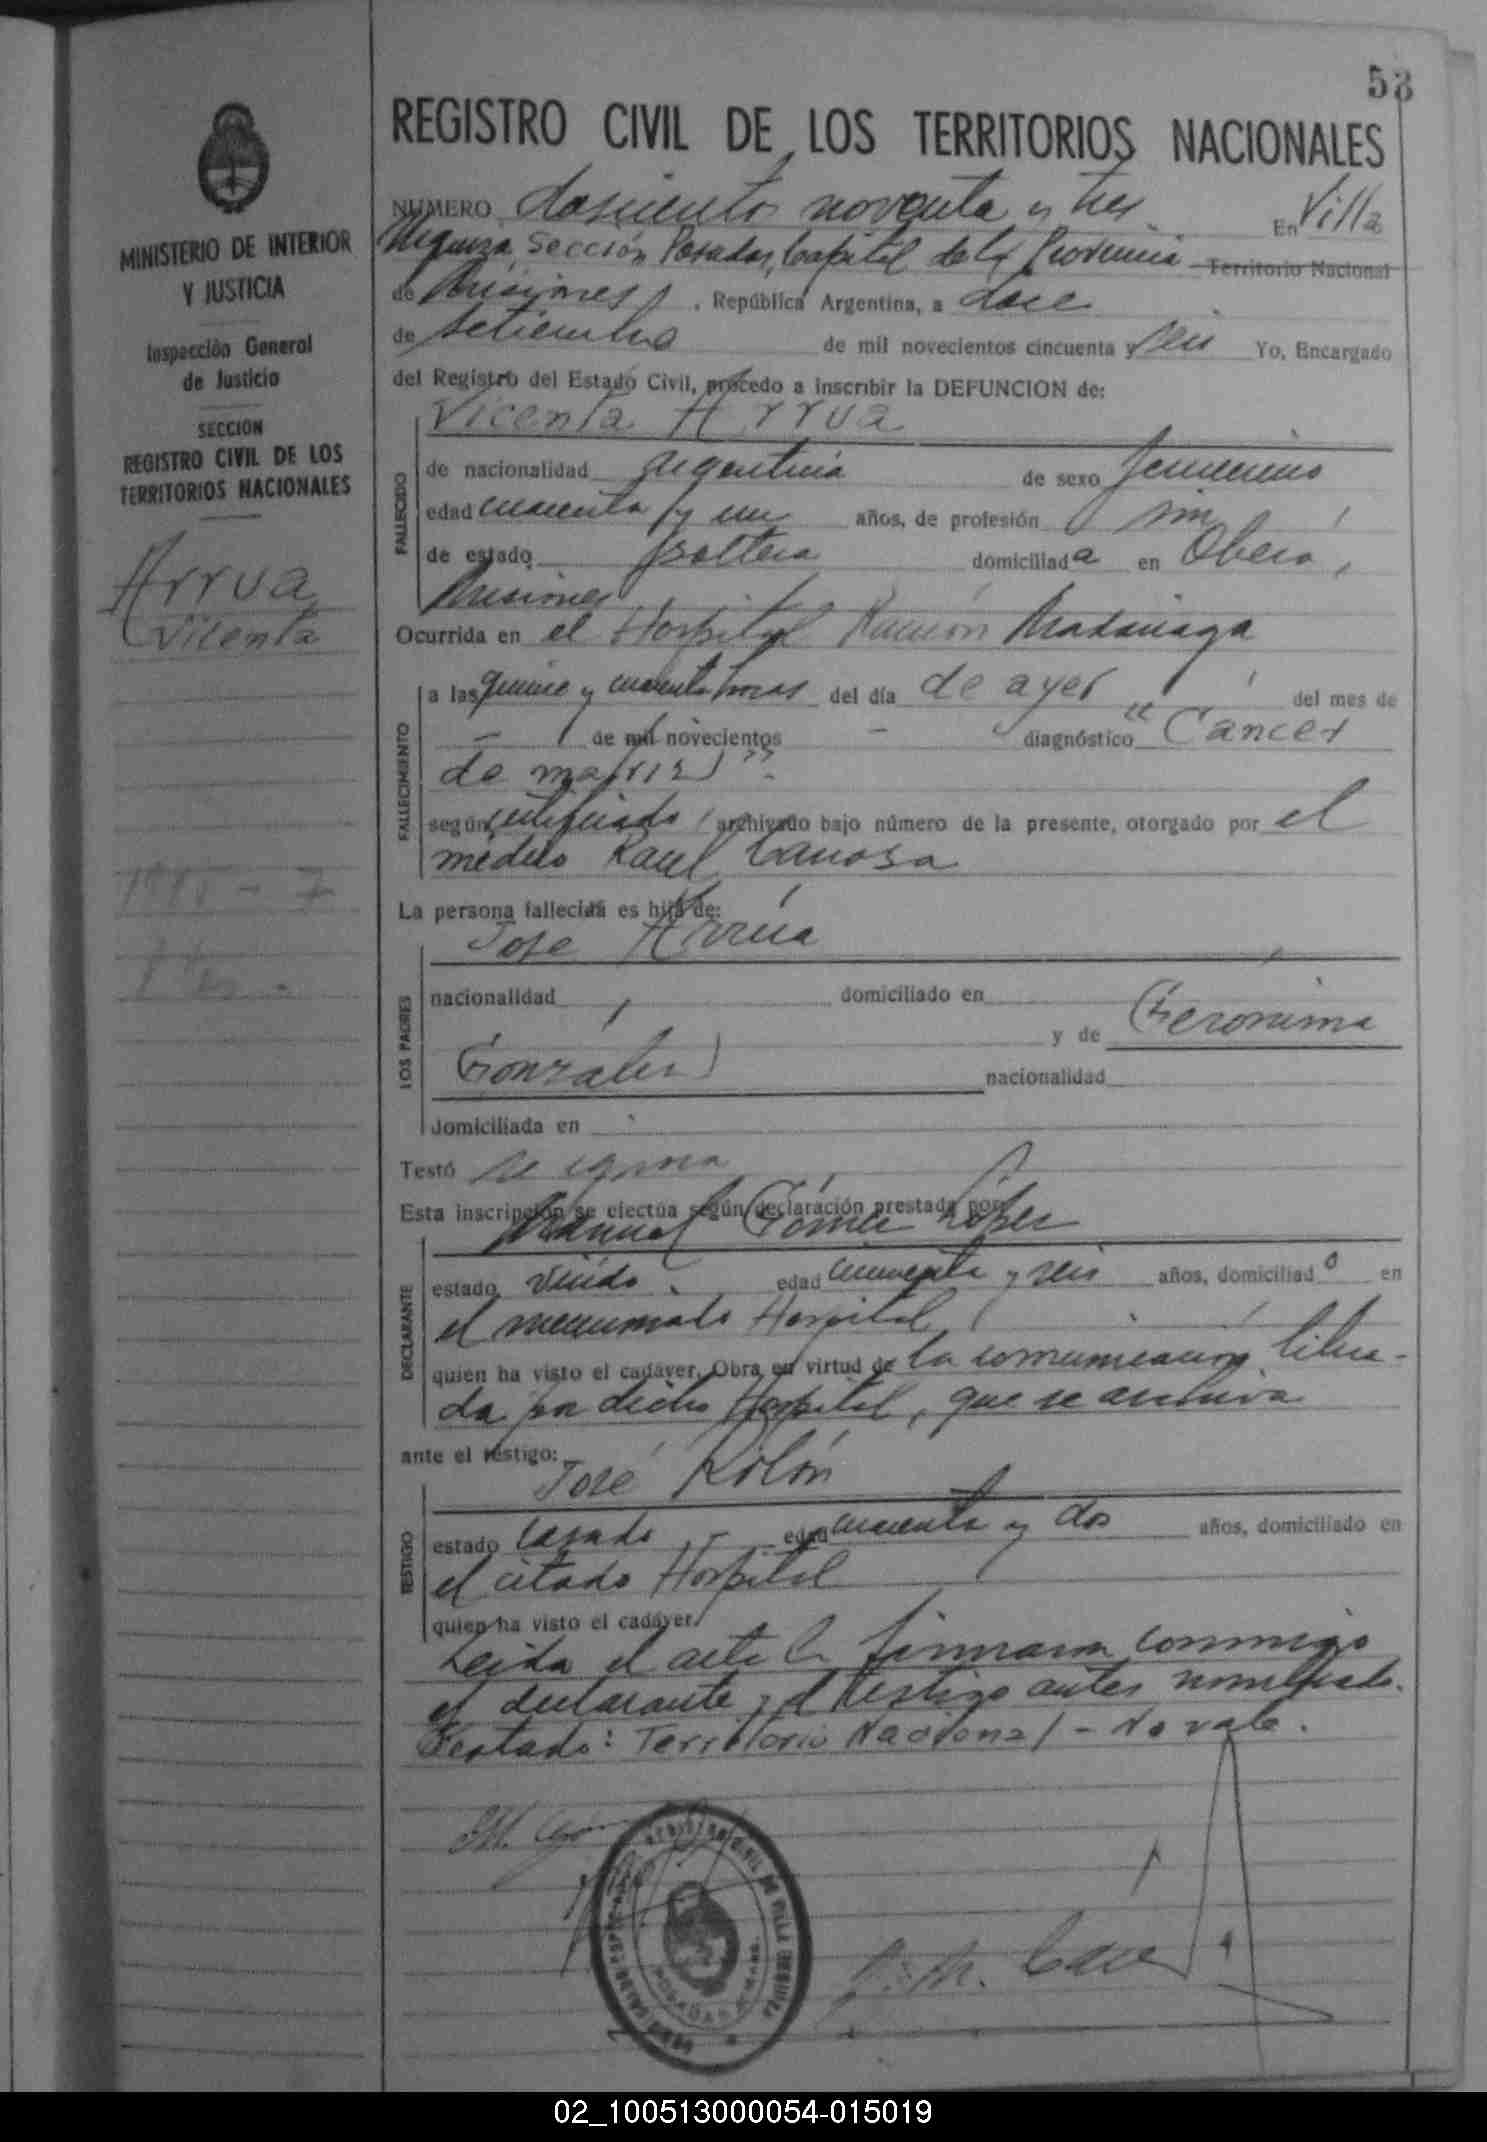 53
REGISTRO CIVIL DE LOS TERRITORIOS NACIONALES
MINISTERIO DE INTERIOR
Y JUSTICIA
Inspección General
de Justicia
SECCIÓN
REGISTRO CIVIL DE LOS
TERRITORIOS NACIONALES
Arrua
Vicenta
NUMERO dosciento noventa y tres En Villa
Urquiza Sección Posadas, Capital de la Provincia Territorio Nacional
de Misiones, República Argentina, a doce
de setiembre de mil novecientos cincuenta y seis Yo, Encargado
del Registro del Estado Civil, procedo a inscribir la DEFUNCION de:
Vicenta Arrua
FALLECIDO
de nacionalidad argentina de sexo femenino
edad cuarenta y un años, de profesión sin
de estado soltera domiciliada en Obera,
Misiones
Ocurrida en el Hospital Ramón Madariaga
FALLECIMIENTO
a las quince y cuarenta horas del día de ayer del mes de
- de mil novecientos - diagnóstico "Cancer
de matriz"
según certificado archivado bajo número de la presente, otorgado por el
médico Raul Canosa
La persona fallecida es hija de:
José Arrúa
LOS PADRES
nacionalidad domiciliado en
y de Gerónima
Gonzales nacionalidad
domiciliada en
Testó se ignora
Esta inscripción se efectúa según declaración prestada por
Manuel Gómez López
DECLARANTE
estado viudo. edad cincuenta y seis años, domiciliado en
el mencionado Hospital
quien ha visto el cadáver. Obra en virtud de la comunicación libra-
da por dicho Hospital, que se archiva
ante el testigo:
José Rolón
TESTIGO
estado casado edad cuarenta y dos años, domiciliado en
el citado Hospital
quien ha visto el cadáver.
Leida el acta la firmaron conmigo
el declarante y el testigo antes nombrado.
Testado: Territorio Nacional - No vale.
REGISTRO CIVIL DE VILLA URQUIZA
POSADAS
02_100513000054-015019